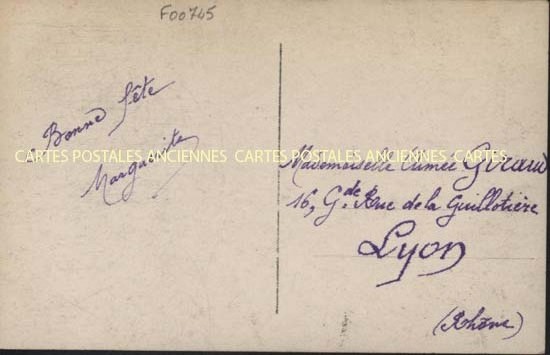 F00745
Bonne fête
Marguerite
CARTES POSTALES ANCIENNES CARTES POSTALES ANCIENNES
Mademoiselle Aimée Giraud
16, Gde Rue de la Guillotière
Lyon
(Rhône)